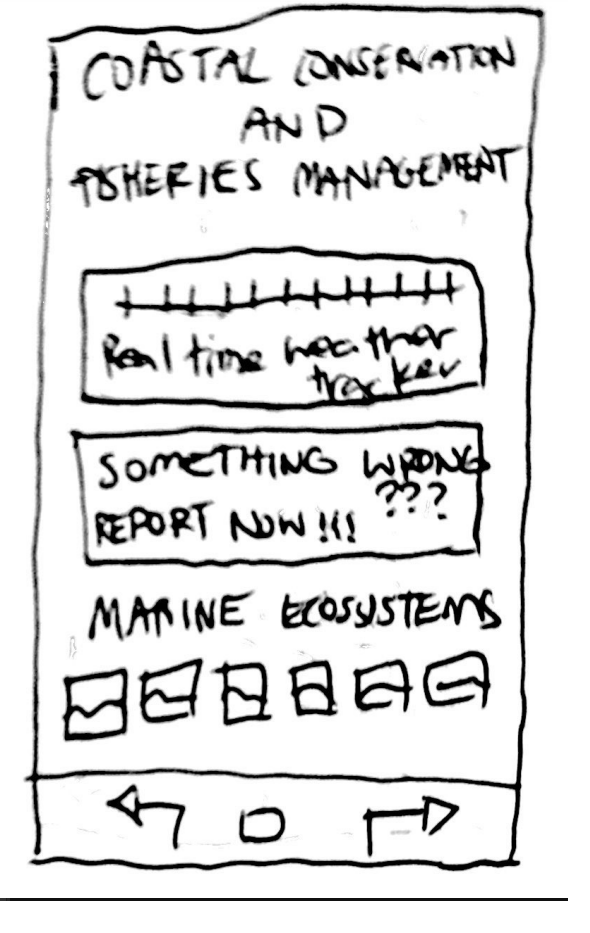 COASTAL CONSERVATION
AND
FISHERIES MANAGEMENT
Real time weather
tracker
SOMETHING WRONG
???
REPORT NOW!!!
MARINE ECOSYSTEMS